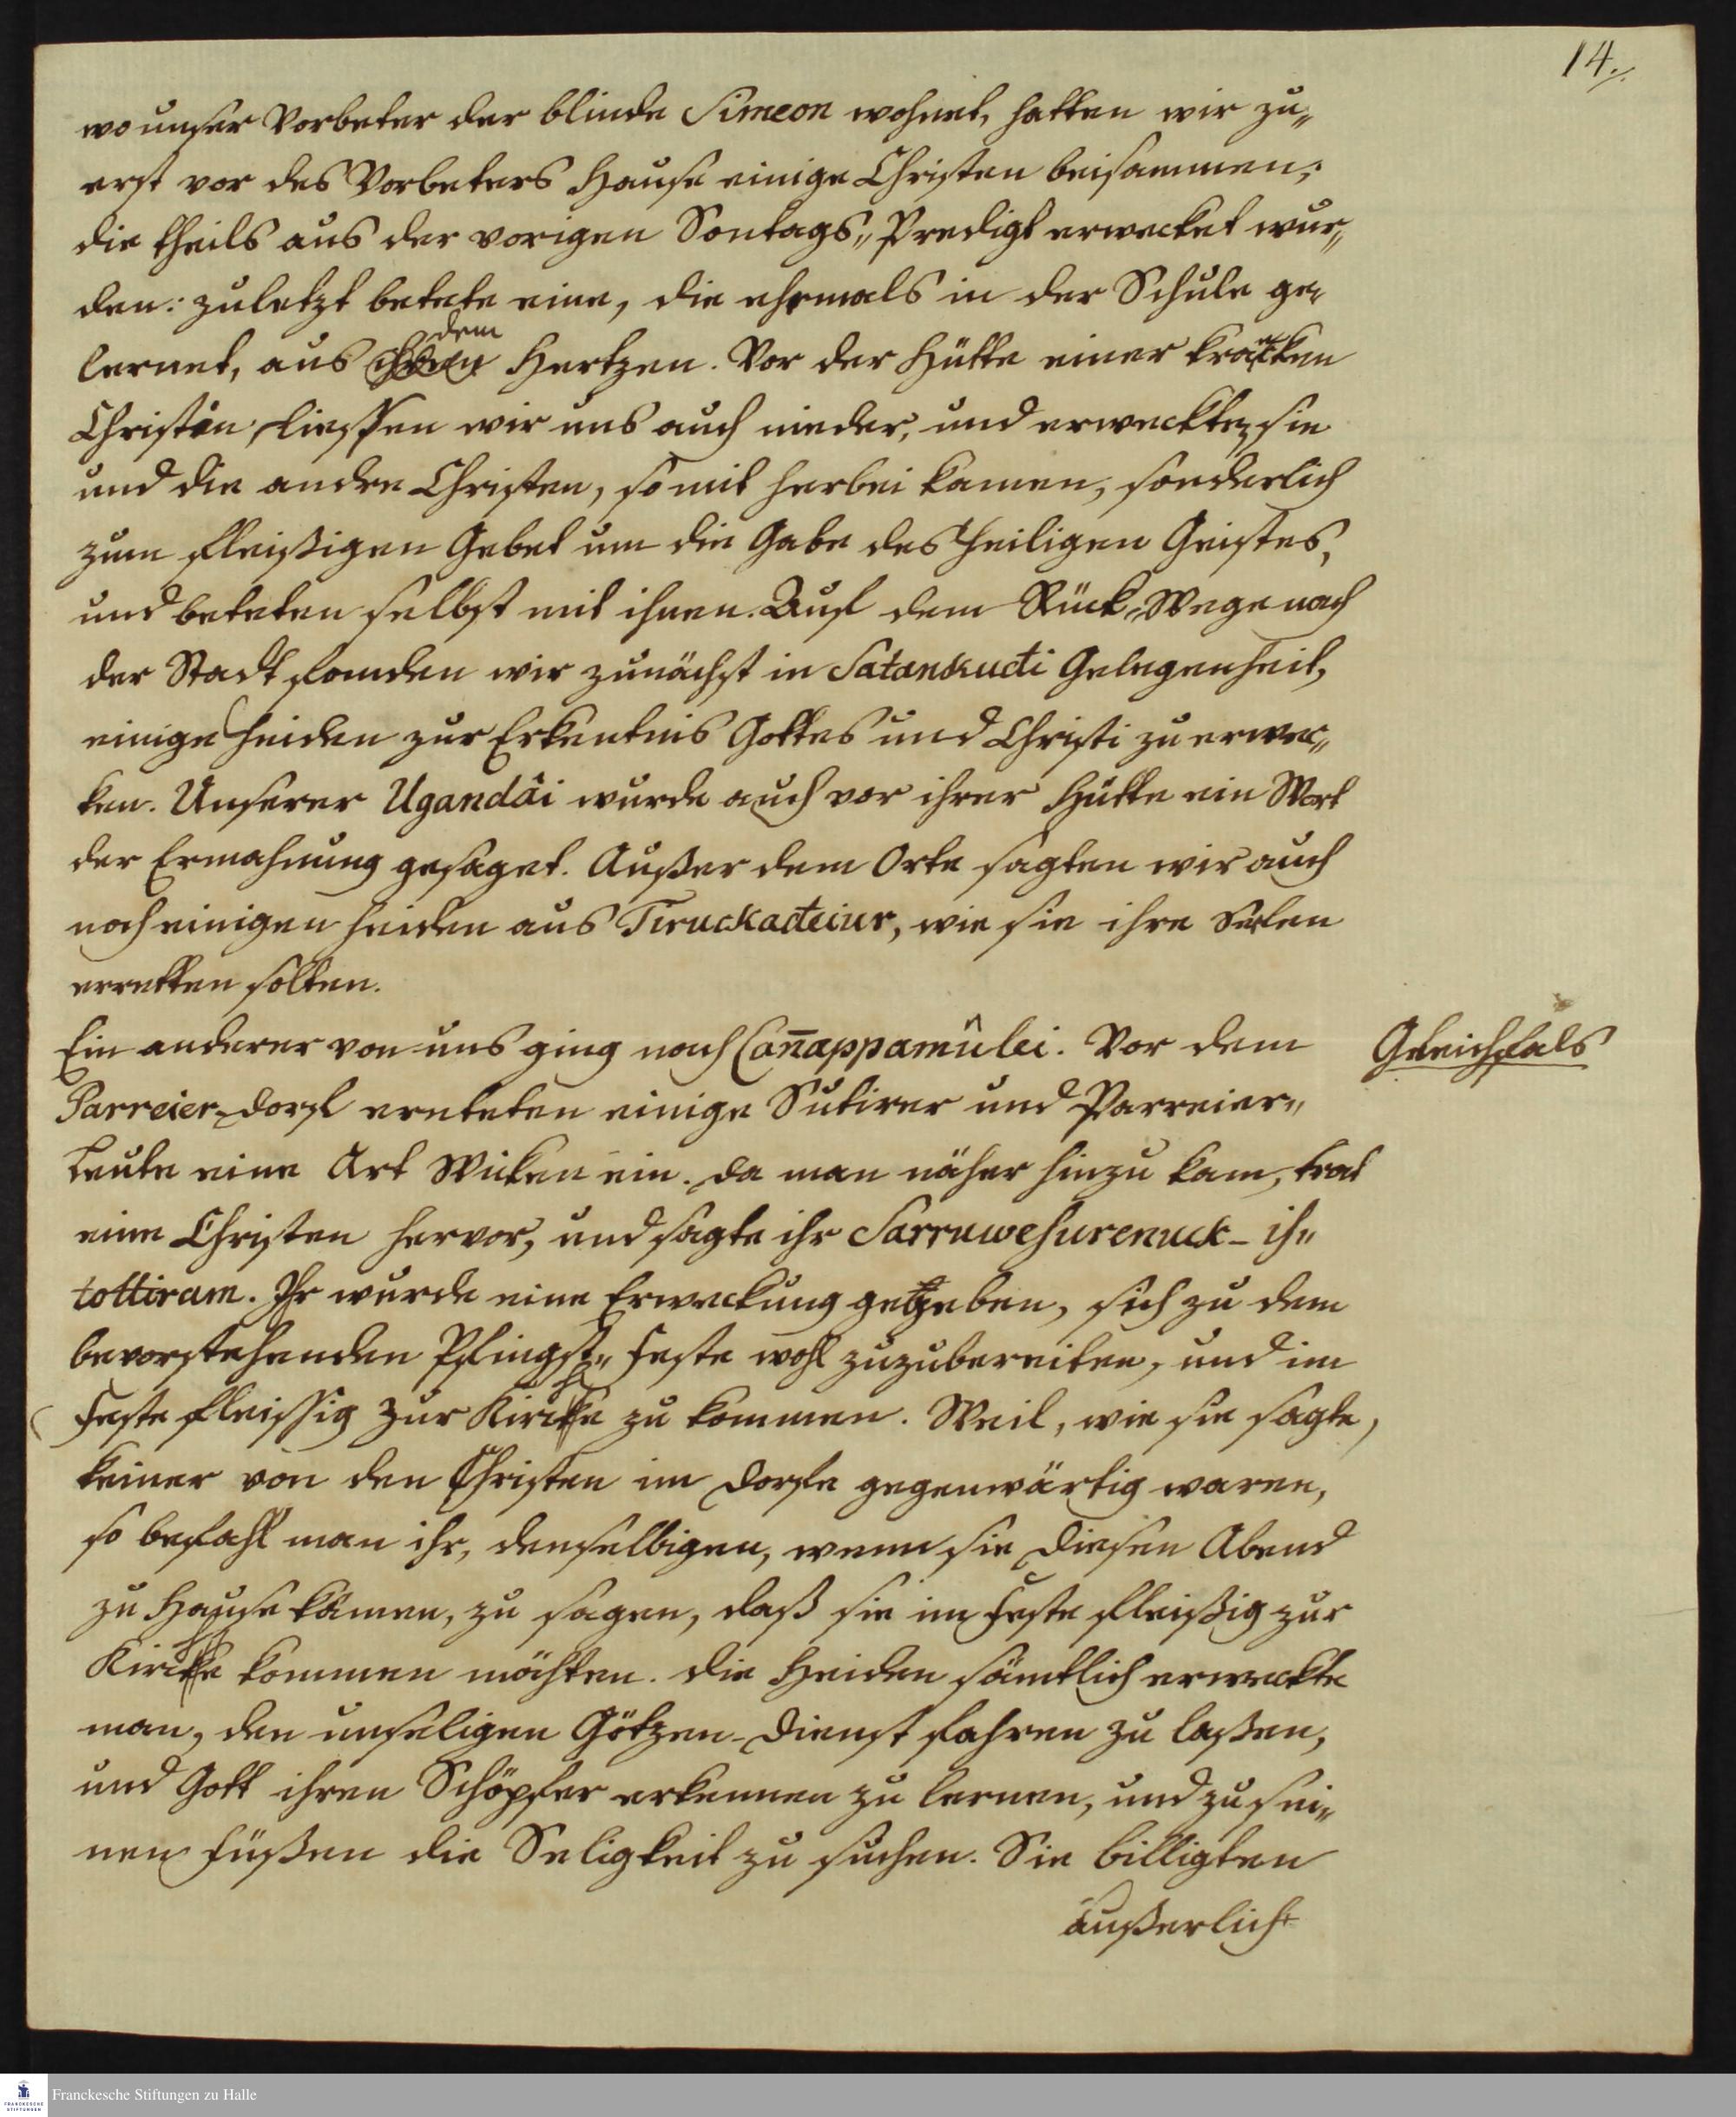 14.
wo unser Vorbeter der blinde Simeon wohnet, hatten wir zu„
erst vor des Vorbeters Hause einige Christen beisammen,
die theils aus der vorigen Sontags„Predigt erwecket wur„
den: zuletzt betete eine, die ehemals in der Schule ge„
lernet, aus dem Hertzen. Vor der Hütte einer krancken
Christin liessen wir uns auch nieder, und erweckten sie
und die andre Christen, so mit herbei kamen, sonderlich
zum fleißigen Gebet um die Gabe des heiligen Geistes,
und beteten selbst mit ihnen. Auf dem Rück-Wege nach
der Stadt fanden wir zunächst in Satankudi Gelegenheit,
einige Heiden zur Erkentnis Gottes und Christi zu erwec„
ken. Unserer Ugandâi wurde auch vor ihrer Hütte ein Wort
der Ermahnung gesaget. Außer dem Orte sagten wir auch
noch einigen Heiden aus Tiruckadeiur, wie sie ihre Selen
erretten solten.
Ein anderer von uns ging nach Can̄appamûlei. Vor dem
Gleichfals
Parreier-Dorf ernteten einige Sutirer und Parreier„
Leute eine Art Wicken ein. Da man näher hinzu kam, trat
eine Christen hervor, und sagte ihr Sarruwesurenuck- is„
tottiram. Ihr wurde eine Erweckung gegeben, sich zu dem
bevorstehenden Pfingst„Feste wohl zuzubereiten, und im
Feste fleissig zur Kirche zu kommen. Weil, wie sie sagte,
keiner von den Christen im Dorfe gegenwärtig waren,
so befahl man ihr, denselbigen, wenn sie diesen Abend
zu Hause kämen, zu sagen, daß sie im Feste fleißig zur
Kirche kommen möchten. Die Heiden sämtlich erweckte
man, den unseligen Götzen-Dienst fahren zu laßen,
und Gott ihren Schöpfer erkennen zu lernen, und zu sei„
nen Füßen die Seligkeit zu suchen. Sie billigten
äußerlich
Franckesche Stiftungen zu Halle